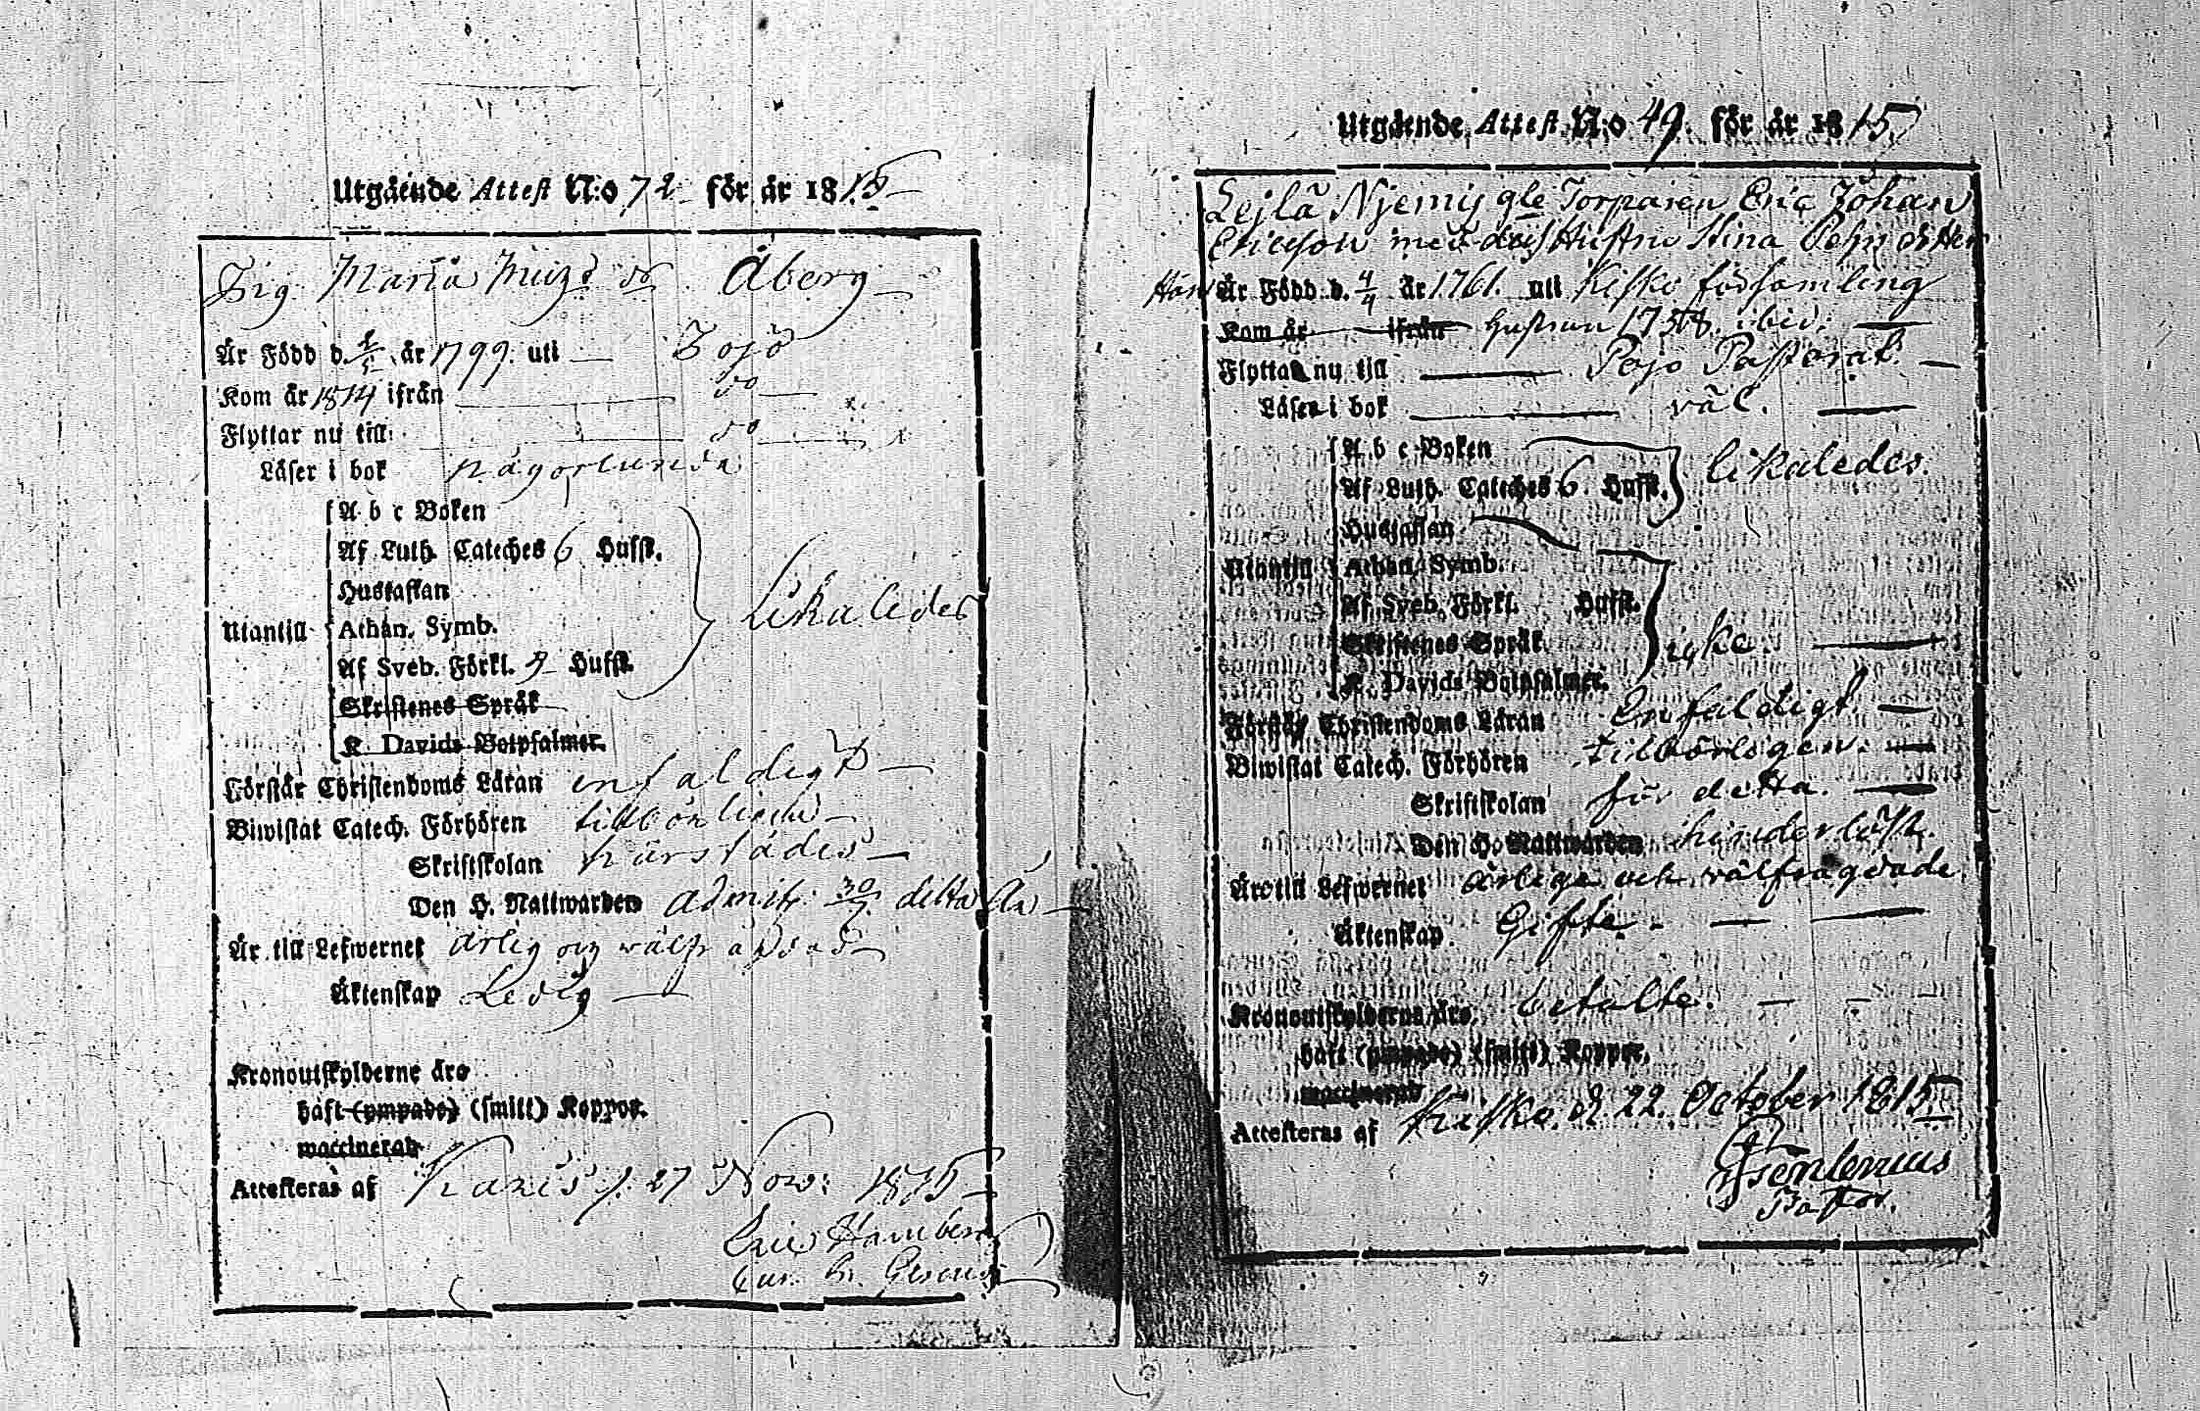 Utgående Attest N:o 72 för år 1815
Pig. Maria Åberg
Är Född d. år 1799. uti Pojo
Kom år 1814 ifrån do
Flyttar nu till do
Läser i bok någorlunda
A b c Boken
Af Luth. Cateches 6 Hufst.
Hustaflan
Utantill Athan. Symb.
Af Sveb. Förkl. Hufst.
Skriftenes Språk
K. Davids Botpsalmer.
Likaledes
Förstår Christendoms Läran enfaldigt
Biwistat Catech. Förhören tillbörligen
Skriftskolan härstädes
Den H. Nattwarden admit. 30/7 detta År
Är till Lefwernet ärlig och wälfrägdad
Äktenskap Ledig
Kronoutskylderne äro
haft (ympade) (smitt) Koppor.
waccinerad
Attesteras af Karis d. 27 Nov: 1815
Eric
Utgående Attest N:o 49. för år 1815.
Lejlä Njemis Torparen Eric Johan
Ericsson med dess Hustru Stina
Han Är Född d. 4/4 år 1761. uti Kisko församling
Kom år ifrån hustrun ibid.
Flyttar nu till Pojo Pastorat.
Läser i bok väl.
A b c Boken
Af Luth. Cateches 6. Hufst. likaledes.
Hustaflan
Utantill Athan. Symb.
Af Sveb. Förkl. Hufst.
Skriftenes Språk icke.
K. Davids Botpsalmer.
Förstår Christendoms Läran Enfaldigt.
Biwistat Catech. Förhören tilbörligen.
Skriftskolan för detta.
Den H. Nattwarden hinderlöst.
Äro till Lefwernet ärlige och välfrägdade.
Äktenskap. Gifte.
Kronoutskylderna äro betalte.
haft (ympade) (smitt) Koppor.
waccinerad
Attesteras af Kisko d. 22. October 1815.
Pastor.